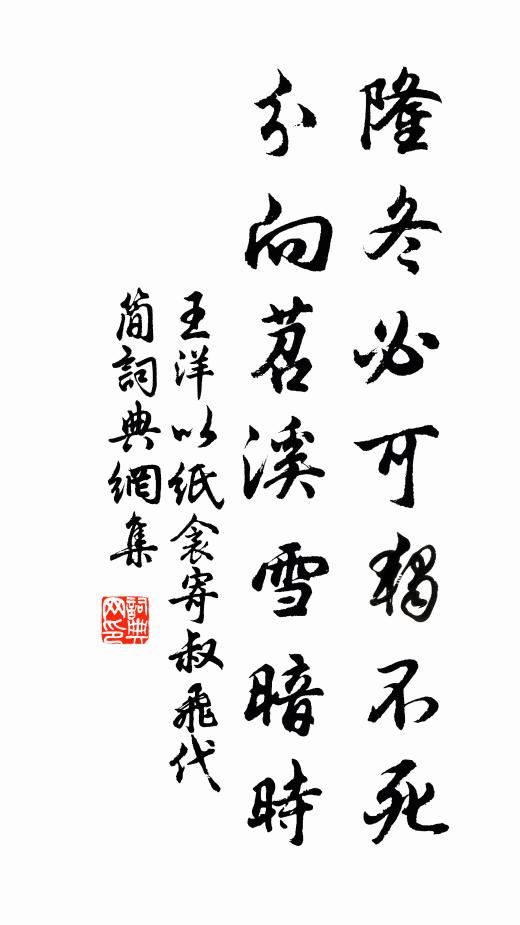 隆冬必可獨不死
分向苕溪雪暗時
王洋以紙衾寄叔飛代
簡詞典網集
詞典
网印